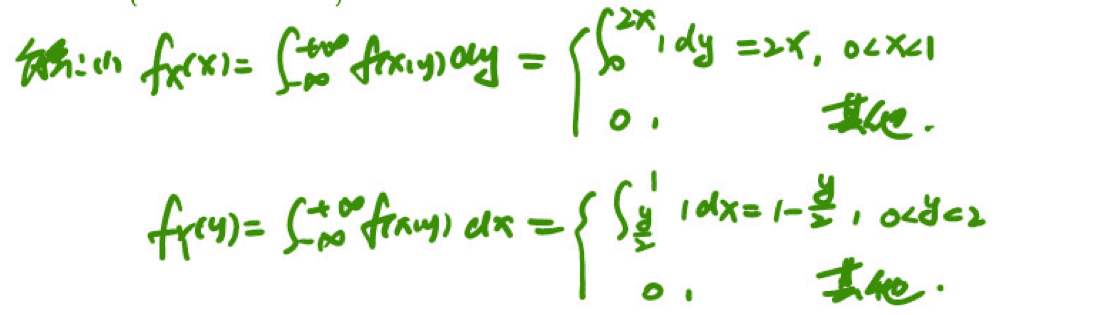 解:(1) f_X(x) = ∫_{-∞}^{+∞} f(x,y) dy = { ∫_0^{2x} 1 dy = 2x, 0<x<1
0, 其他.
f_Y(y) = ∫_{-∞}^{+∞} f(x,y) dx = { ∫_{y/2}^{1} 1 dx = 1 - y/2, 0<y<2
0, 其他.